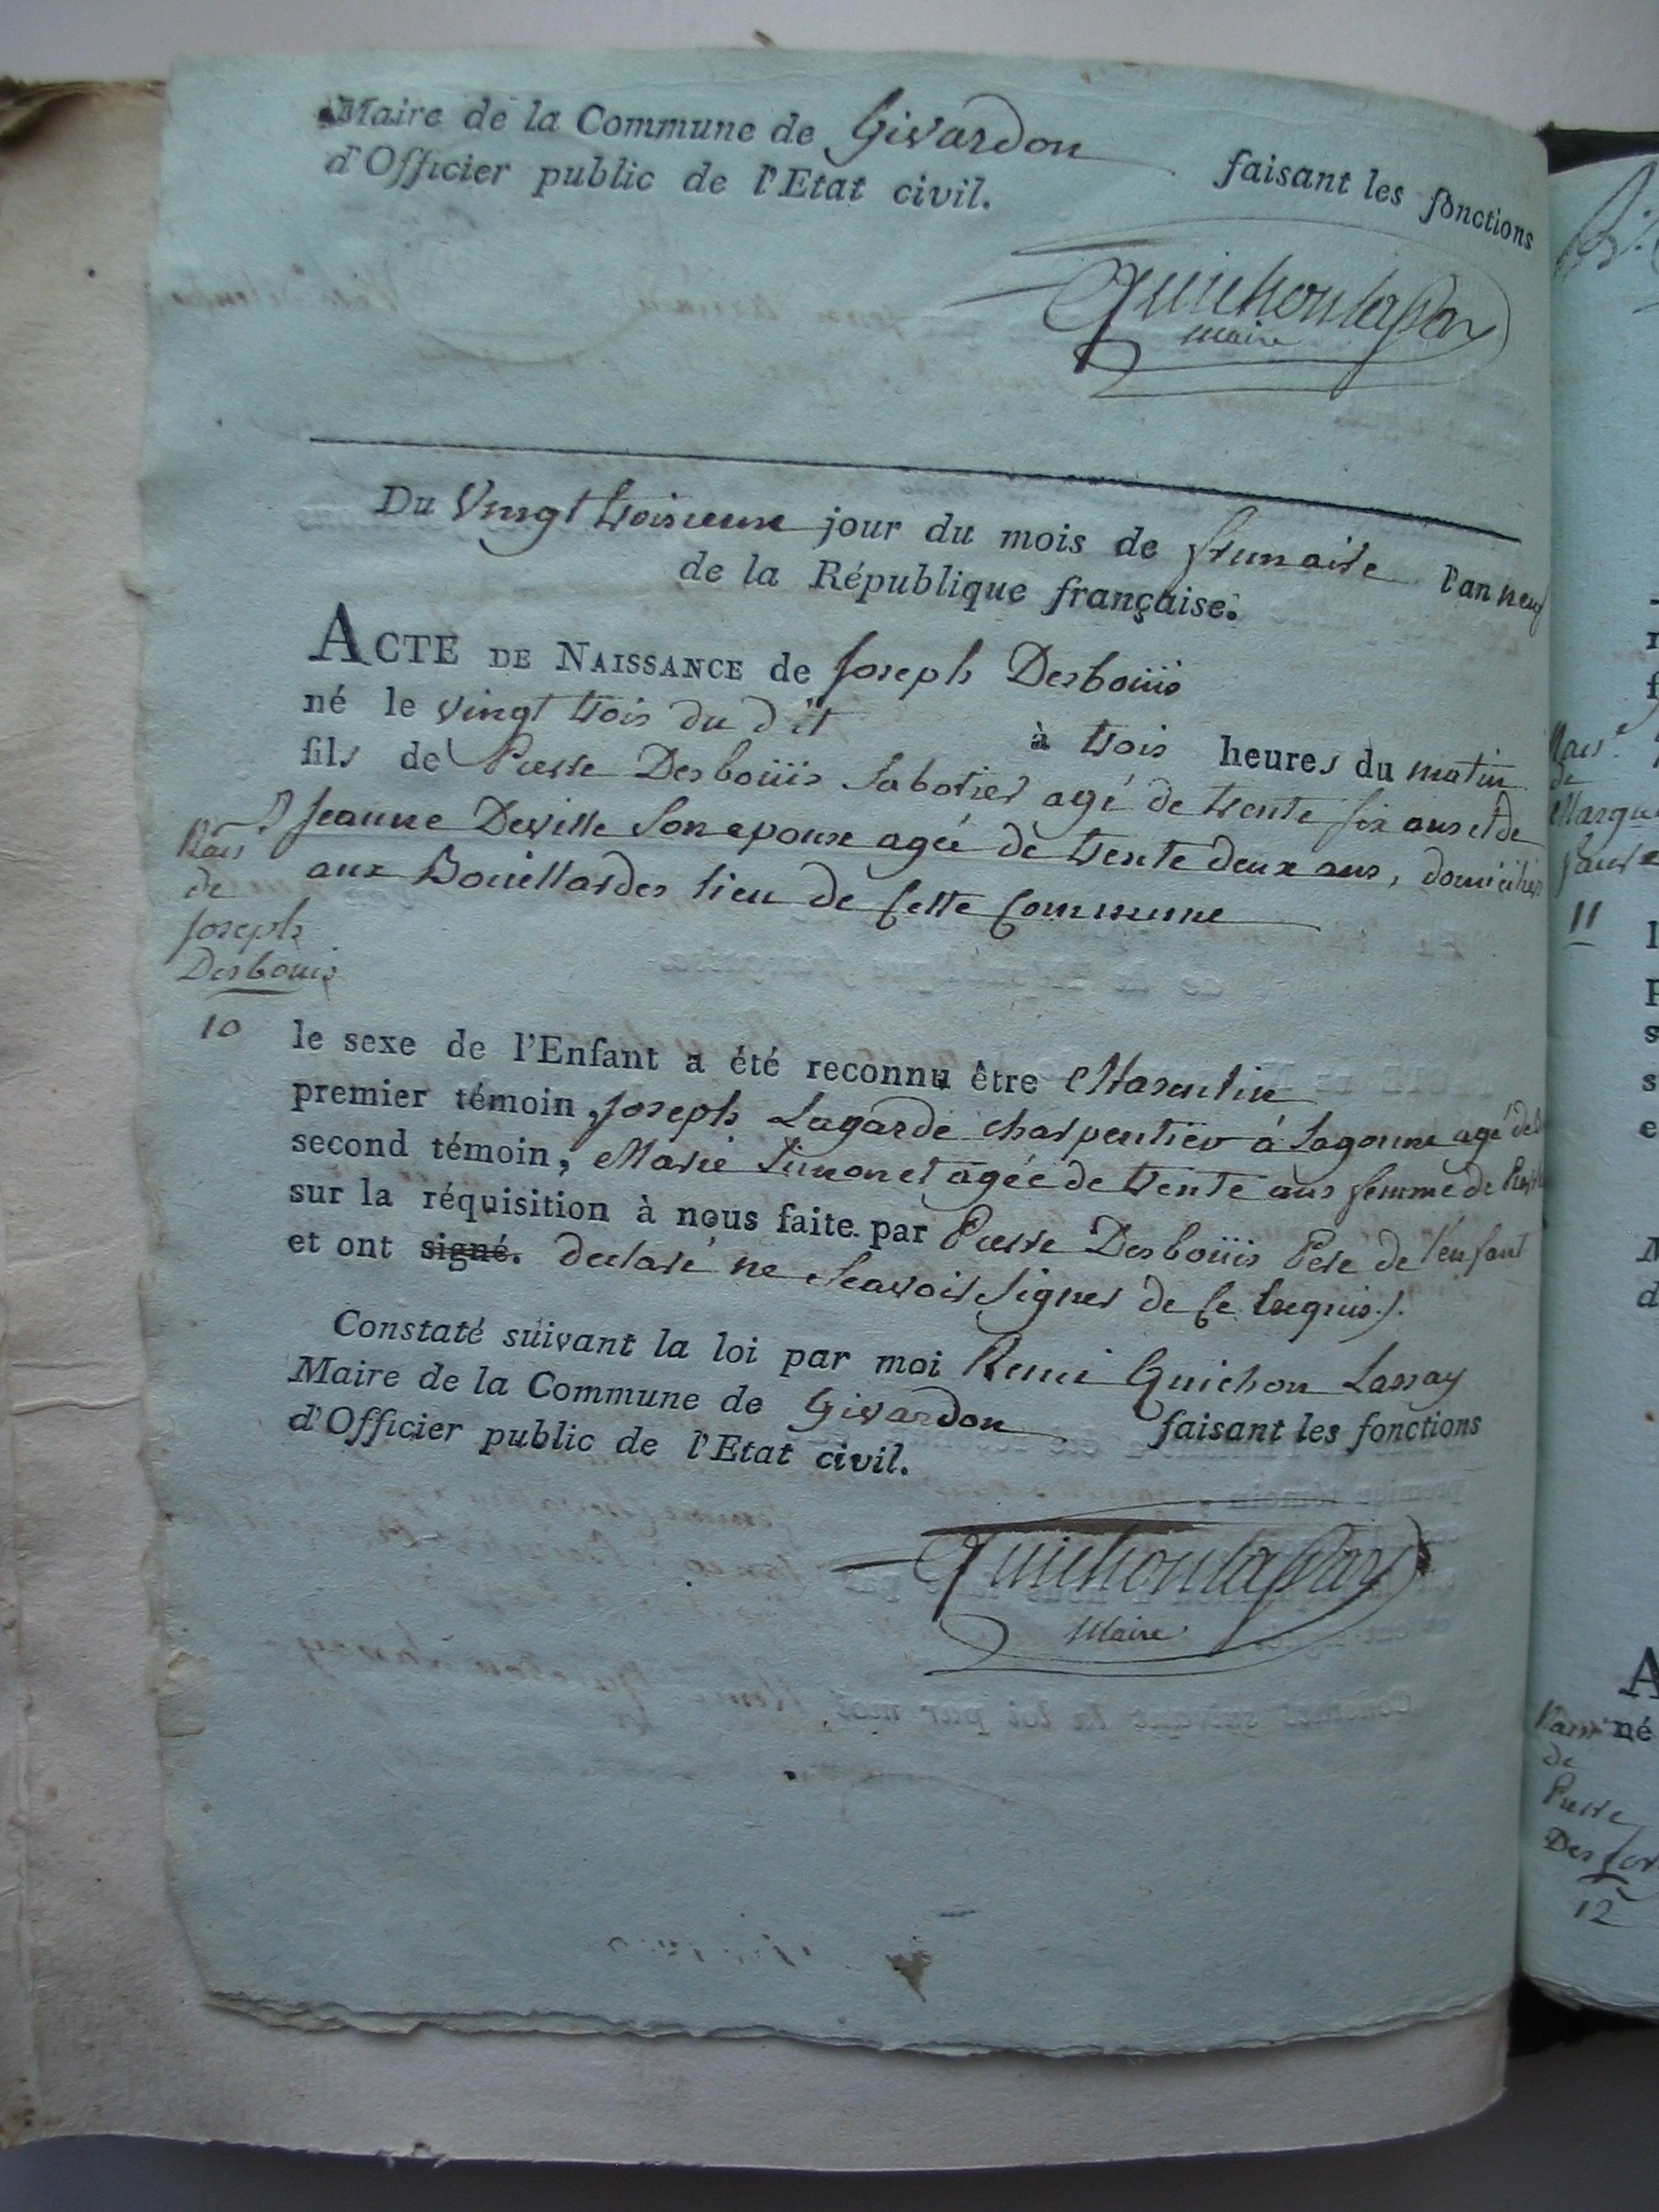 Maire de la Commune de Givardon faisant les fonctions
d'Officier public de l'Etat civil.
Guichonlassay
maire
Du vingt troisieme jour du mois de frimaire l'an neuf
de la République française.
ACTE DE NAISSANCE de Joseph Desboüis
né le vingt trois du dit à trois heures du matin
fils de Pierre Desboüis Sabotier agé de trente six ans et de
Jeanne Deville Son epouse agée de trente deux ans, domiciliés
aux Bouillardes lieu de Cette Commune
Nais.ce
de
Joseph
Desbouis
10
le sexe de l'Enfant a été reconnu être Masculin
premier témoin, Joseph Lagarde charpentier à Sagonne agé
second témoin, Marie Simonet agée de trente ans femme de
sur la réquisition à nous faite par Pierre Desboüis Pere de l'enfant
et ont signé. declaré ne Scavoir Signer de Ce Enquis.
Constaté suivant la loi par moi Remi Guichon Lassay
Maire de la Commune de Givardon faisant les fonctions
d'Officier public de l'Etat civil.
Guichonlassay
Maire
Nais.e
de
11
A
né
de
Pierre
12